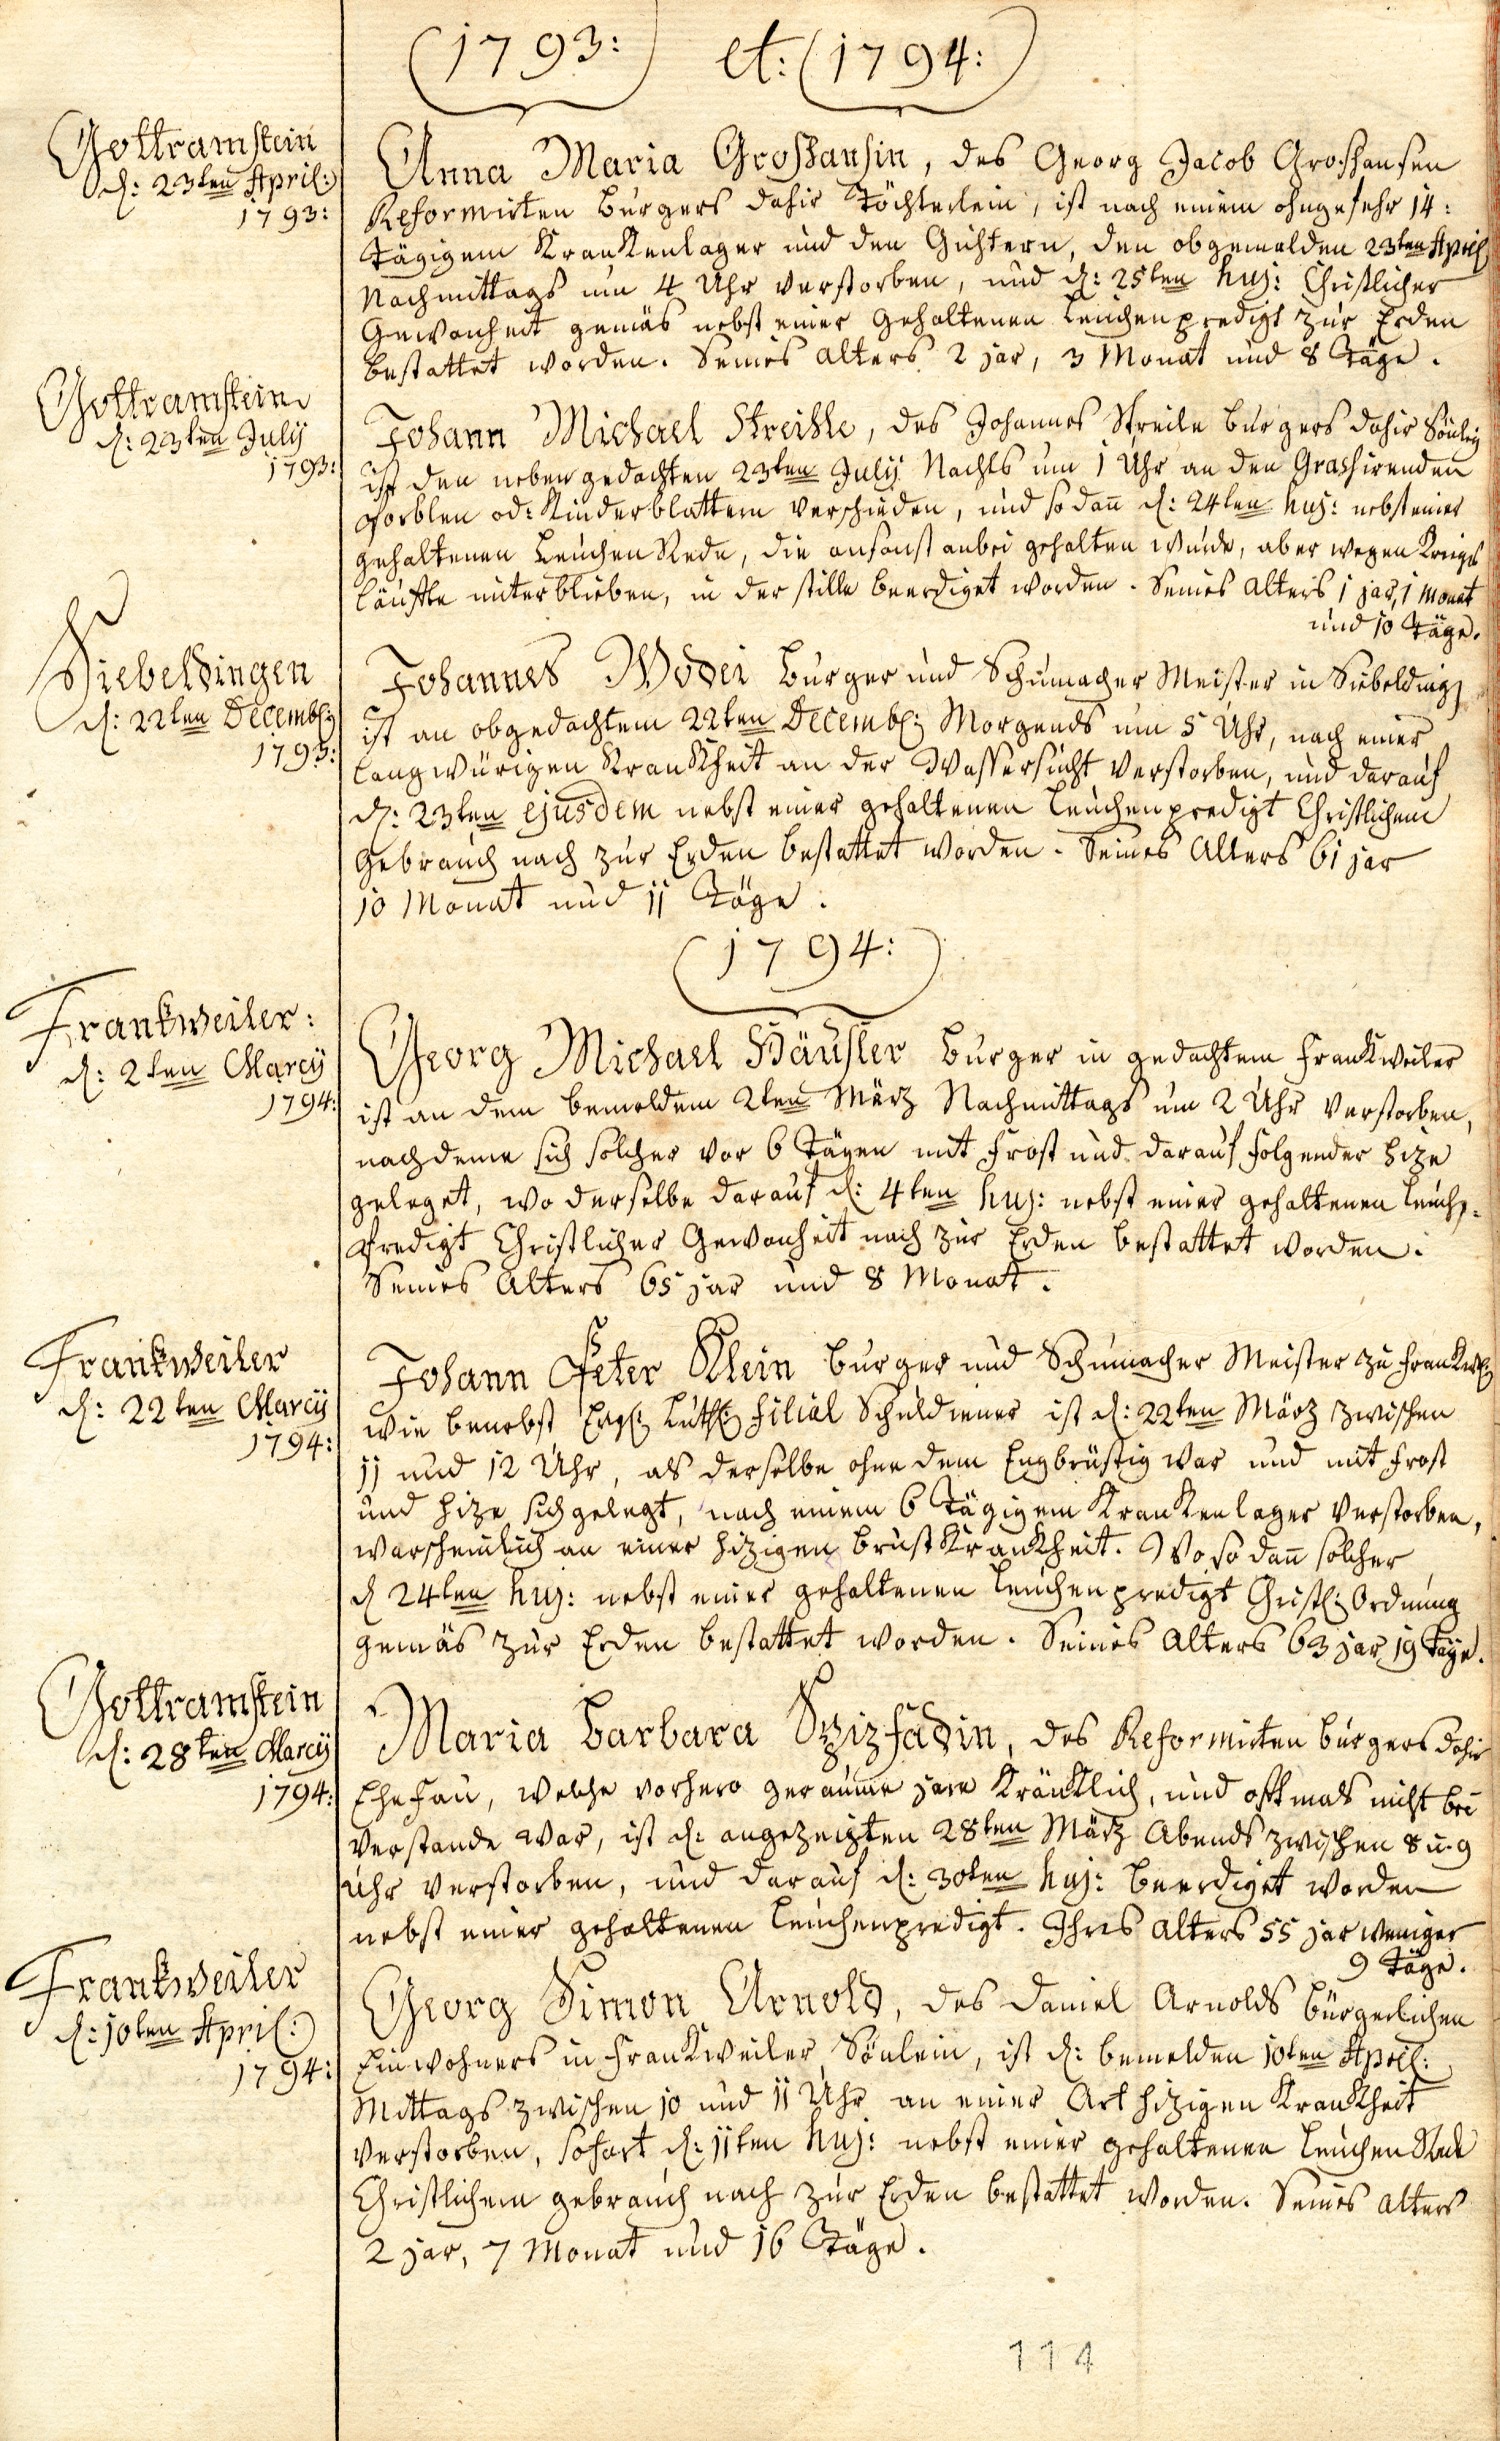 (1793:) et: (1794:)
Gottramstein
d: 23ten April:
1793:
Anna Maria Großansin, des Georg Jacob Groshansen
Reformirten Burgers dahir Töchterlein, ist nach einem ohngefehr 14:
Tägigem Krankenlager und den Gichtern, den obgemelden 23ten April
Nachmittags um 4 Uhr verstorben, und d: 25ten huj: Christlicher
Gewonheit gemäs nebst einer gehaltenen Leichenpredigt zur Erden
bestattet worden. Seines alters 2 jar, 3 Monat und 8 Täge.
Gottramstein
d: 23ten July
1793:
Johann Michael Streihle, des Johannes Streile burgers dahir
ist den neben gedachten 23ten July Nachts um 1 Uhr an den Grassirenden
Porblen od: Kinderblattern verschieden, und so dañ d: 24ten huj: nebst einer
gehaltenen Leichen Rede, die ansonst anbei gehalten wurde, aber wegen Kriegs
läuffte unterblieben, in der stille beerdiget worden. Seines alters 1 jar, 1 Monat
und 10 Täge.
Siebeldingen
d: 22ten Decemb:
1793:
Johannes Burger und Schumacher Meister in Siebelding
ist an obgedachtem 22ten Decemb: Morgends um 5 Uhr, nach einer
langwürigen Krankheit an der Wassersucht verstorben, und darauf
d: 23ten ejusdem nebst einer gehaltenen Leichenpredigt Christlichem
gebrauch nach zur Erden bestattet worden. Seines Alters 61 jar
10 Monat und 11 Täge.
(1794:)
Frankweiler:
d: 2ten Marcy
1794:
Georg Michael Häusler Burger in gedachtem Frankweiler
ist an dem bemeldem 2ten März Nachmittags um 2 Uhr verstorben,
nachdeme sich solcher vor 6 Tägen mit Frost und darauf folgender hize
geleget, wo derselbe darauf d: 4ten huj: nebst einer gehaltenen Leich-
Predigt Christlicher Gewonheit nach zur Erden bestattet worden.
Seines Alters 65 jar und 8 Monat.
Frankweiler
d: 22ten Marcy
1794:
Johann Peter Klein burger und Schumacher Meister zu
wie benebst Luth: Filial Schuldiener ist d: 22ten März zwischen
11 und 12 Uhr, als derselbe ohne dem Engbrüstig war und mit Frost
und hize sich gelegt, nach einem 6 Tägigem Krankenlager verstorben,
warscheinlich an einer hizigen brust Krankheit. Wo so dañ solcher
d 24ten huj: nebst einer gehaltenen Leichenpredigt Christl: Ordnung
gemäs zur Erden bestattet worden. Seines Alters 63 jar 19 Täge.
Gottramstein
d: 28ten Marcy
1794:
Maria Barbara Spizfadin, des Reformirten burgers dahir
Ehefrau, welche vorhero geraume jare Kränklich, und oftmals nicht bei
Verstande war, ist d: angezeigten 28ten März Abends zwischen 8 u. 9
Uhr verstorben, und darauf d: 30ten huj: beerdiget worden
nebst einer gehaltenen Leichenpredigt. Ihres alters 55 jar weniger
9 Täge.
Frankweiler
d: 10ten April:
1794:
Georg Simon Arnold, des Daniel Arnolds bürgerlichen
Einwohners in Frankweiler Sönlein, ist d: bemelden 10ten April:
Mittags zwischen 10 und 11 Uhr an einer Art hizigen Krankheit
verstorben, sofort d: 11ten huj: nebst einer gehaltenen Leichen Rede
Christlichem gebrauch nach zur Erden bestattet worden. Seines alters
2 jar, 7 Monat und 16 Täge.
114